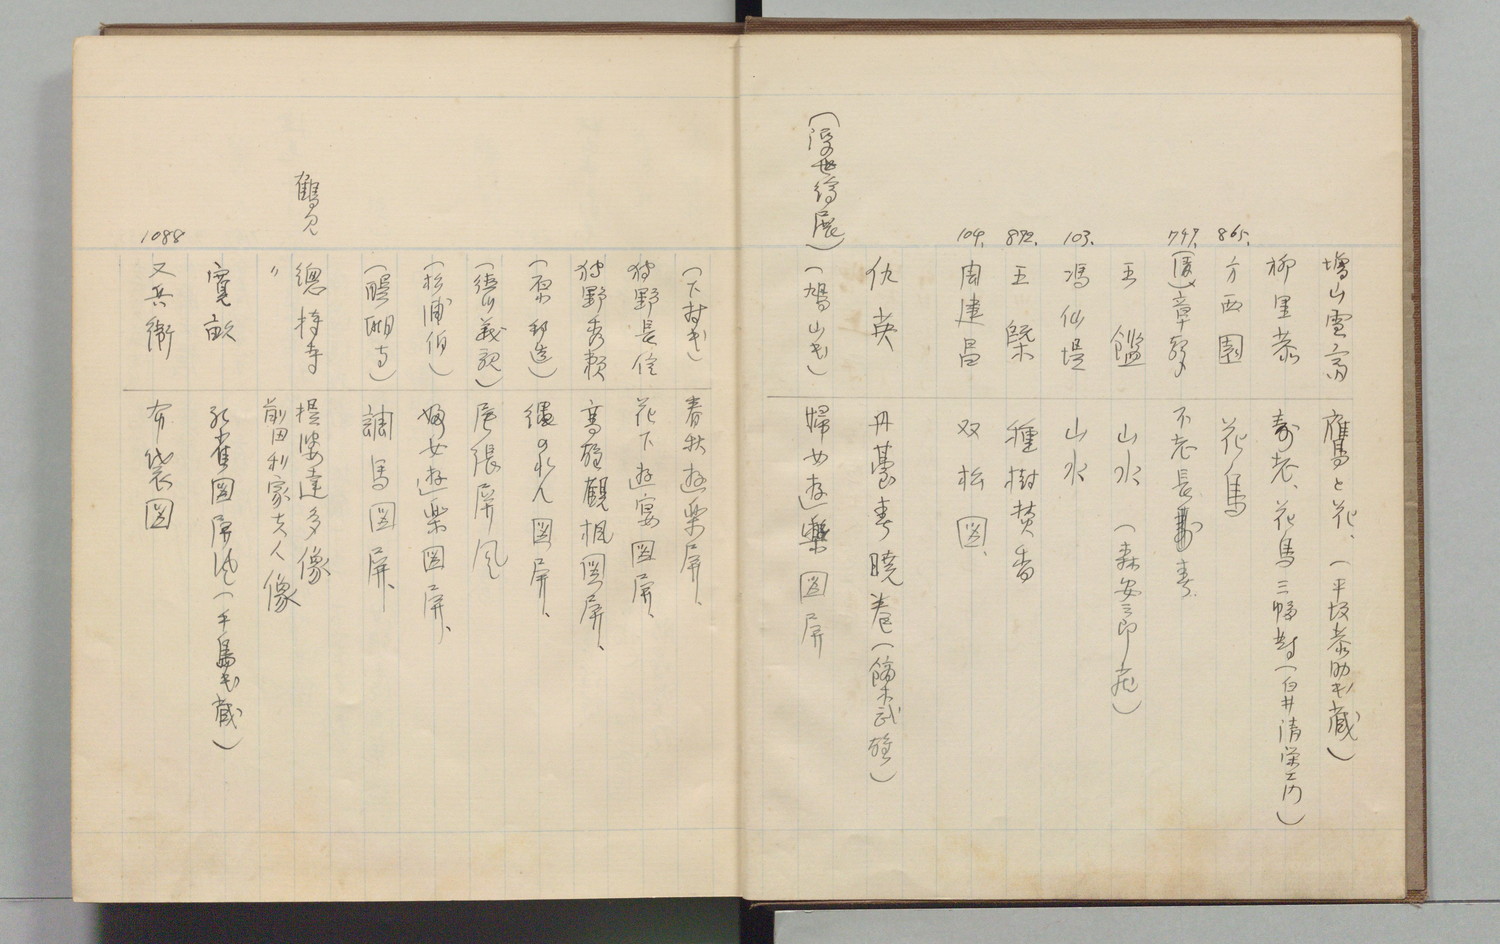 増山雪斎 鷹と花、(平坂恭助氏蔵)
柳里恭 寿老、花鳥三幅対(白井清栄工門)
865. 方西園 花鳥
747. 章声 不老長春
王鑑 山水(森安三郎
103. 馮仙湜 山水
892. 王槩 種樹焚香
104. 周建昌 双松図、
仇英 丹薹春暁巻(鏑木武雄)
(浮世絵展)(鳩山氏) 婦女遊楽図屏
(下村氏) 春秋遊楽屏、
狩野長信 花下遊宴図屏、
狩野秀頼 高雄観楓図屏、
(原邦造) 縄のれん図屏、
(徳川義親) 尾張屏風
(松浦伯) 婦女遊楽図屏、
(醍醐寺) 調馬図屏、
鶴見 總持寺 提婆達多像
〃 前田利家夫人像
寛畝 孔雀図屏風(千島氏蔵)
1088 又兵衛 布袋図